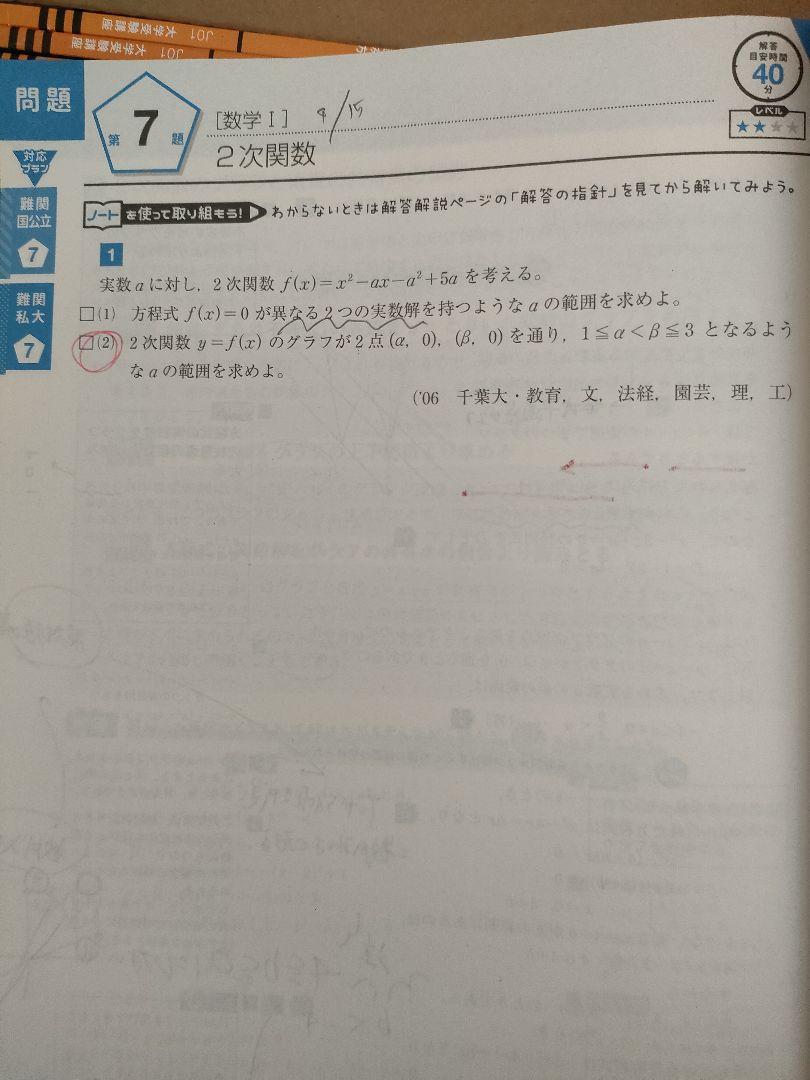 JO1 大学受験講座
JO1 大学受験講座
解答
目安時間
40
分
レベル
★★★★
問題
第7題
[数学Ⅰ] 9/15
2次関数
対応
プラン
難関
国公立
7
難関
私大
7
ノートを使って取り組もう! わからないときは解答解説ページの「解答の指針」を見てから解いてみよう。
1
実数aに対し,2次関数 f(x)=x²−ax−a²+5a を考える。
□(1) 方程式 f(x)=0 が異なる2つの実数解を持つようなaの範囲を求めよ。
□(2) 2次関数 y=f(x) のグラフが2点(α, 0),(β, 0)を通り,1≦α<β≦3 となるよう
なaの範囲を求めよ。
('06 千葉大・教育,文,法経,園芸,理,工)